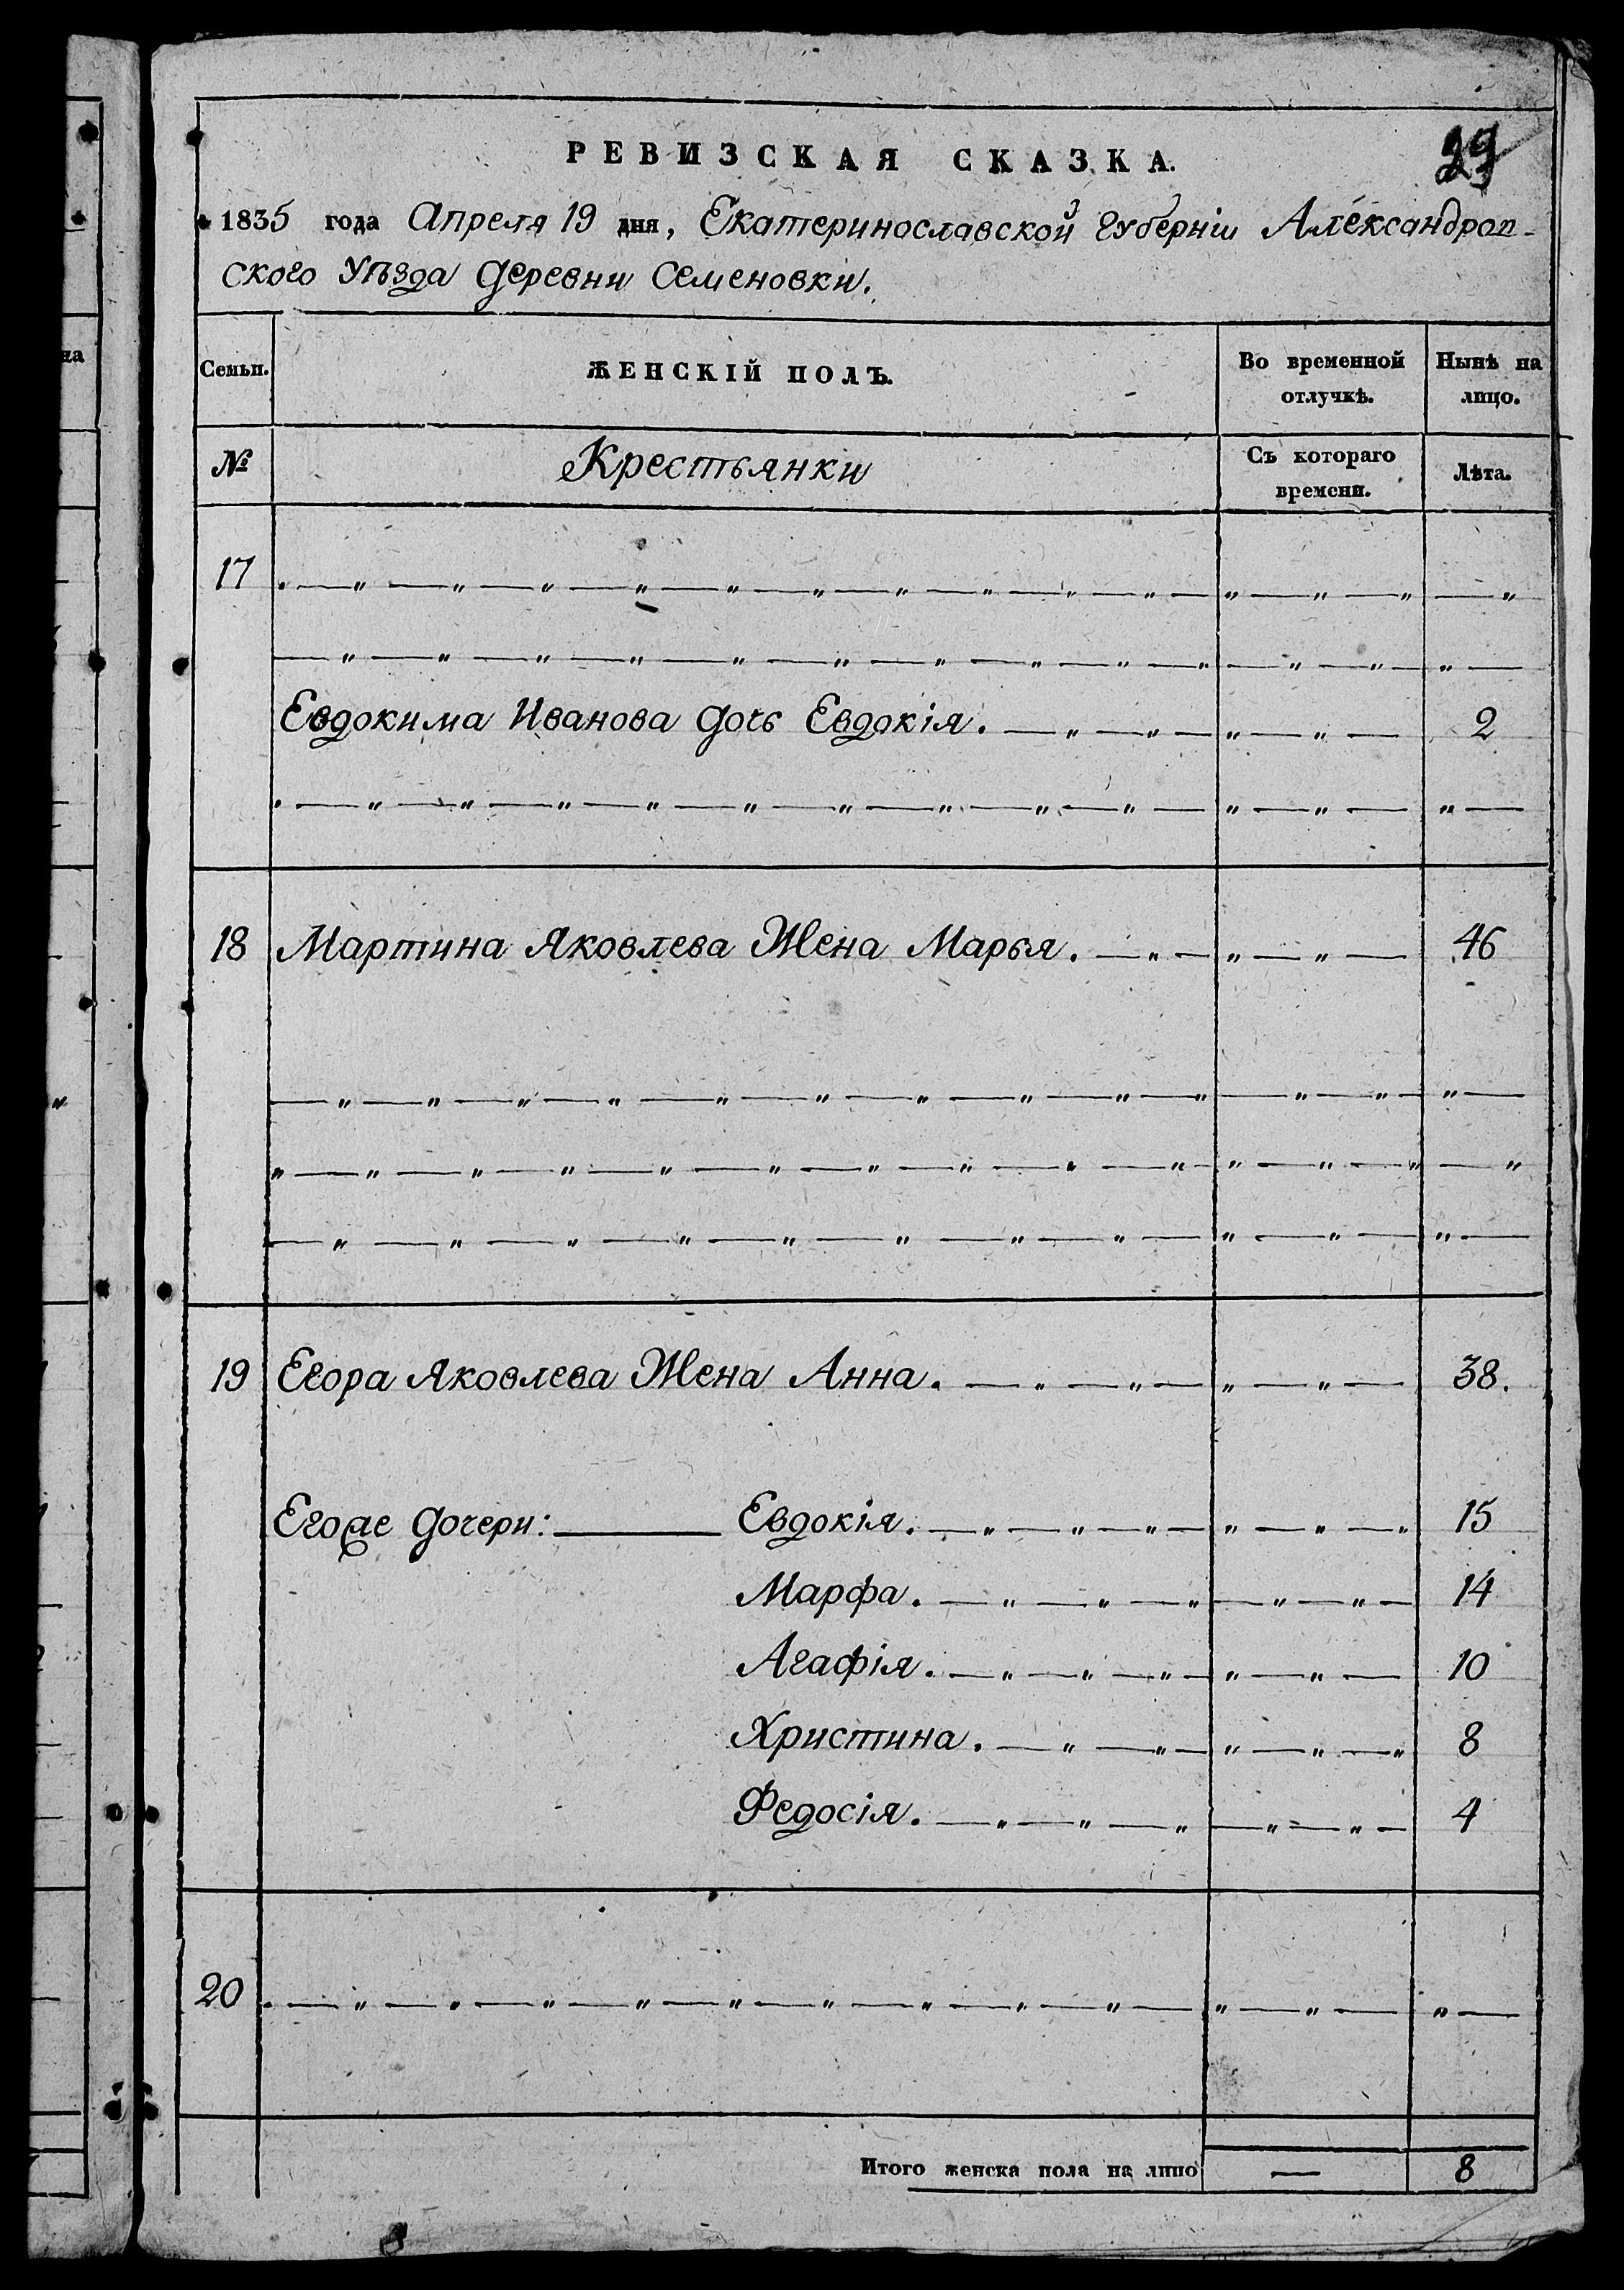 РЕВИЗСКАЯ СКАЗКА.
29
1835 года Апреля 19 дня, Екатеринославской Губерніи Александров-
ского Уѣзда деревни Семеновки.
Семьи.
ЖЕНСКІЙ ПОЛЪ.
Во временной отлучкѣ.
Нынѣ на лицо.
№
Крестьянки
Съ котораго времени.
Лѣта.
17
Евдокима Иванова дочь Евдокія. 2
18 Мартина Яковлева Жена Марья. 46
19 Егора Яковлева Жена Анна. 38.
Егоже дочери: Евдокія. 15
Марфа. 14
Агафія. 10
Христина. 8
Федосія. 4
20
Итого женска пола на лицо — 8